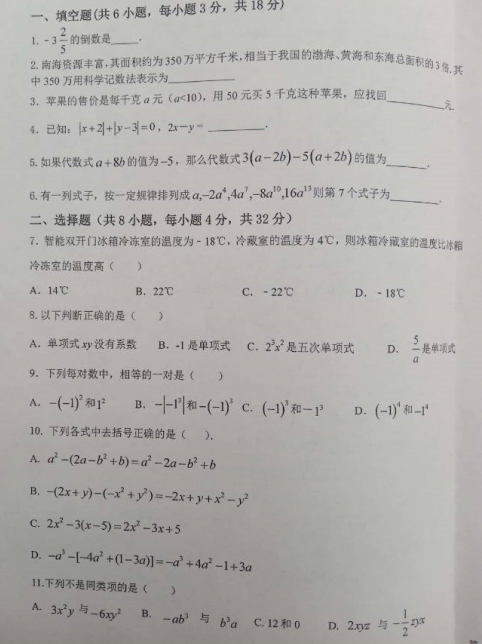 一、填空题(共 6 小题，每小题 3 分，共 18 分)
1. -3 2/5 的倒数是____.
2. 南海资源丰富,其面积约为 350 万平方千米,相当于我国的渤海、黄海和东海总面积的 3 倍.其
中 350 万用科学记数法表示为____
3．苹果的售价是每千克 a 元（a<10），用 50 元买 5 千克这种苹果，应找回____元.
4．已知：|x+2|+|y−3|=0，2x−y= ____.
5. 如果代数式 a+8b 的值为 −5，那么代数式 3(a−2b)−5(a+2b) 的值为____.
6. 有一列式子，按一定规律排列成 a,−2a⁴,4a⁷,−8a¹⁰,16a¹³ 则第 7 个式子为____.
二、选择题（共 8 小题，每小题 4 分，共 32 分）
7. 智能双开门冰箱冷冻室的温度为﹣18℃，冷藏室的温度为 4℃，则冰箱冷藏室的温度比冰箱
冷冻室的温度高（ ）
A．14℃ B．22℃ C．﹣22℃ D．﹣18℃
8. 以下判断正确的是（ ）
A．单项式 xy 没有系数 B．-1 是单项式 C．2³x² 是五次单项式 D．5/a 是单项式
9．下列每对数中，相等的一对是（ ）
A．−(−1)² 和 1² B．−|−1³| 和 −(−1)³ C．(−1)³ 和 −1³ D．(−1)⁴ 和 −1⁴
10. 下列各式中去括号正确的是（ ）.
A. a²−(2a−b²+b)=a²−2a−b²+b
B. −(2x+y)−(−x²+y²)=−2x+y+x²−y²
C. 2x²−3(x−5)=2x²−3x+5
D. −a³−[−4a²+(1−3a)]=−a³+4a²−1+3a
11.下列不是同类项的是（ ）
A. 3x²y 与 −6xy² B. −ab³ 与 b³a C. 12 和 0 D. 2xyz 与 −1/2 zyx